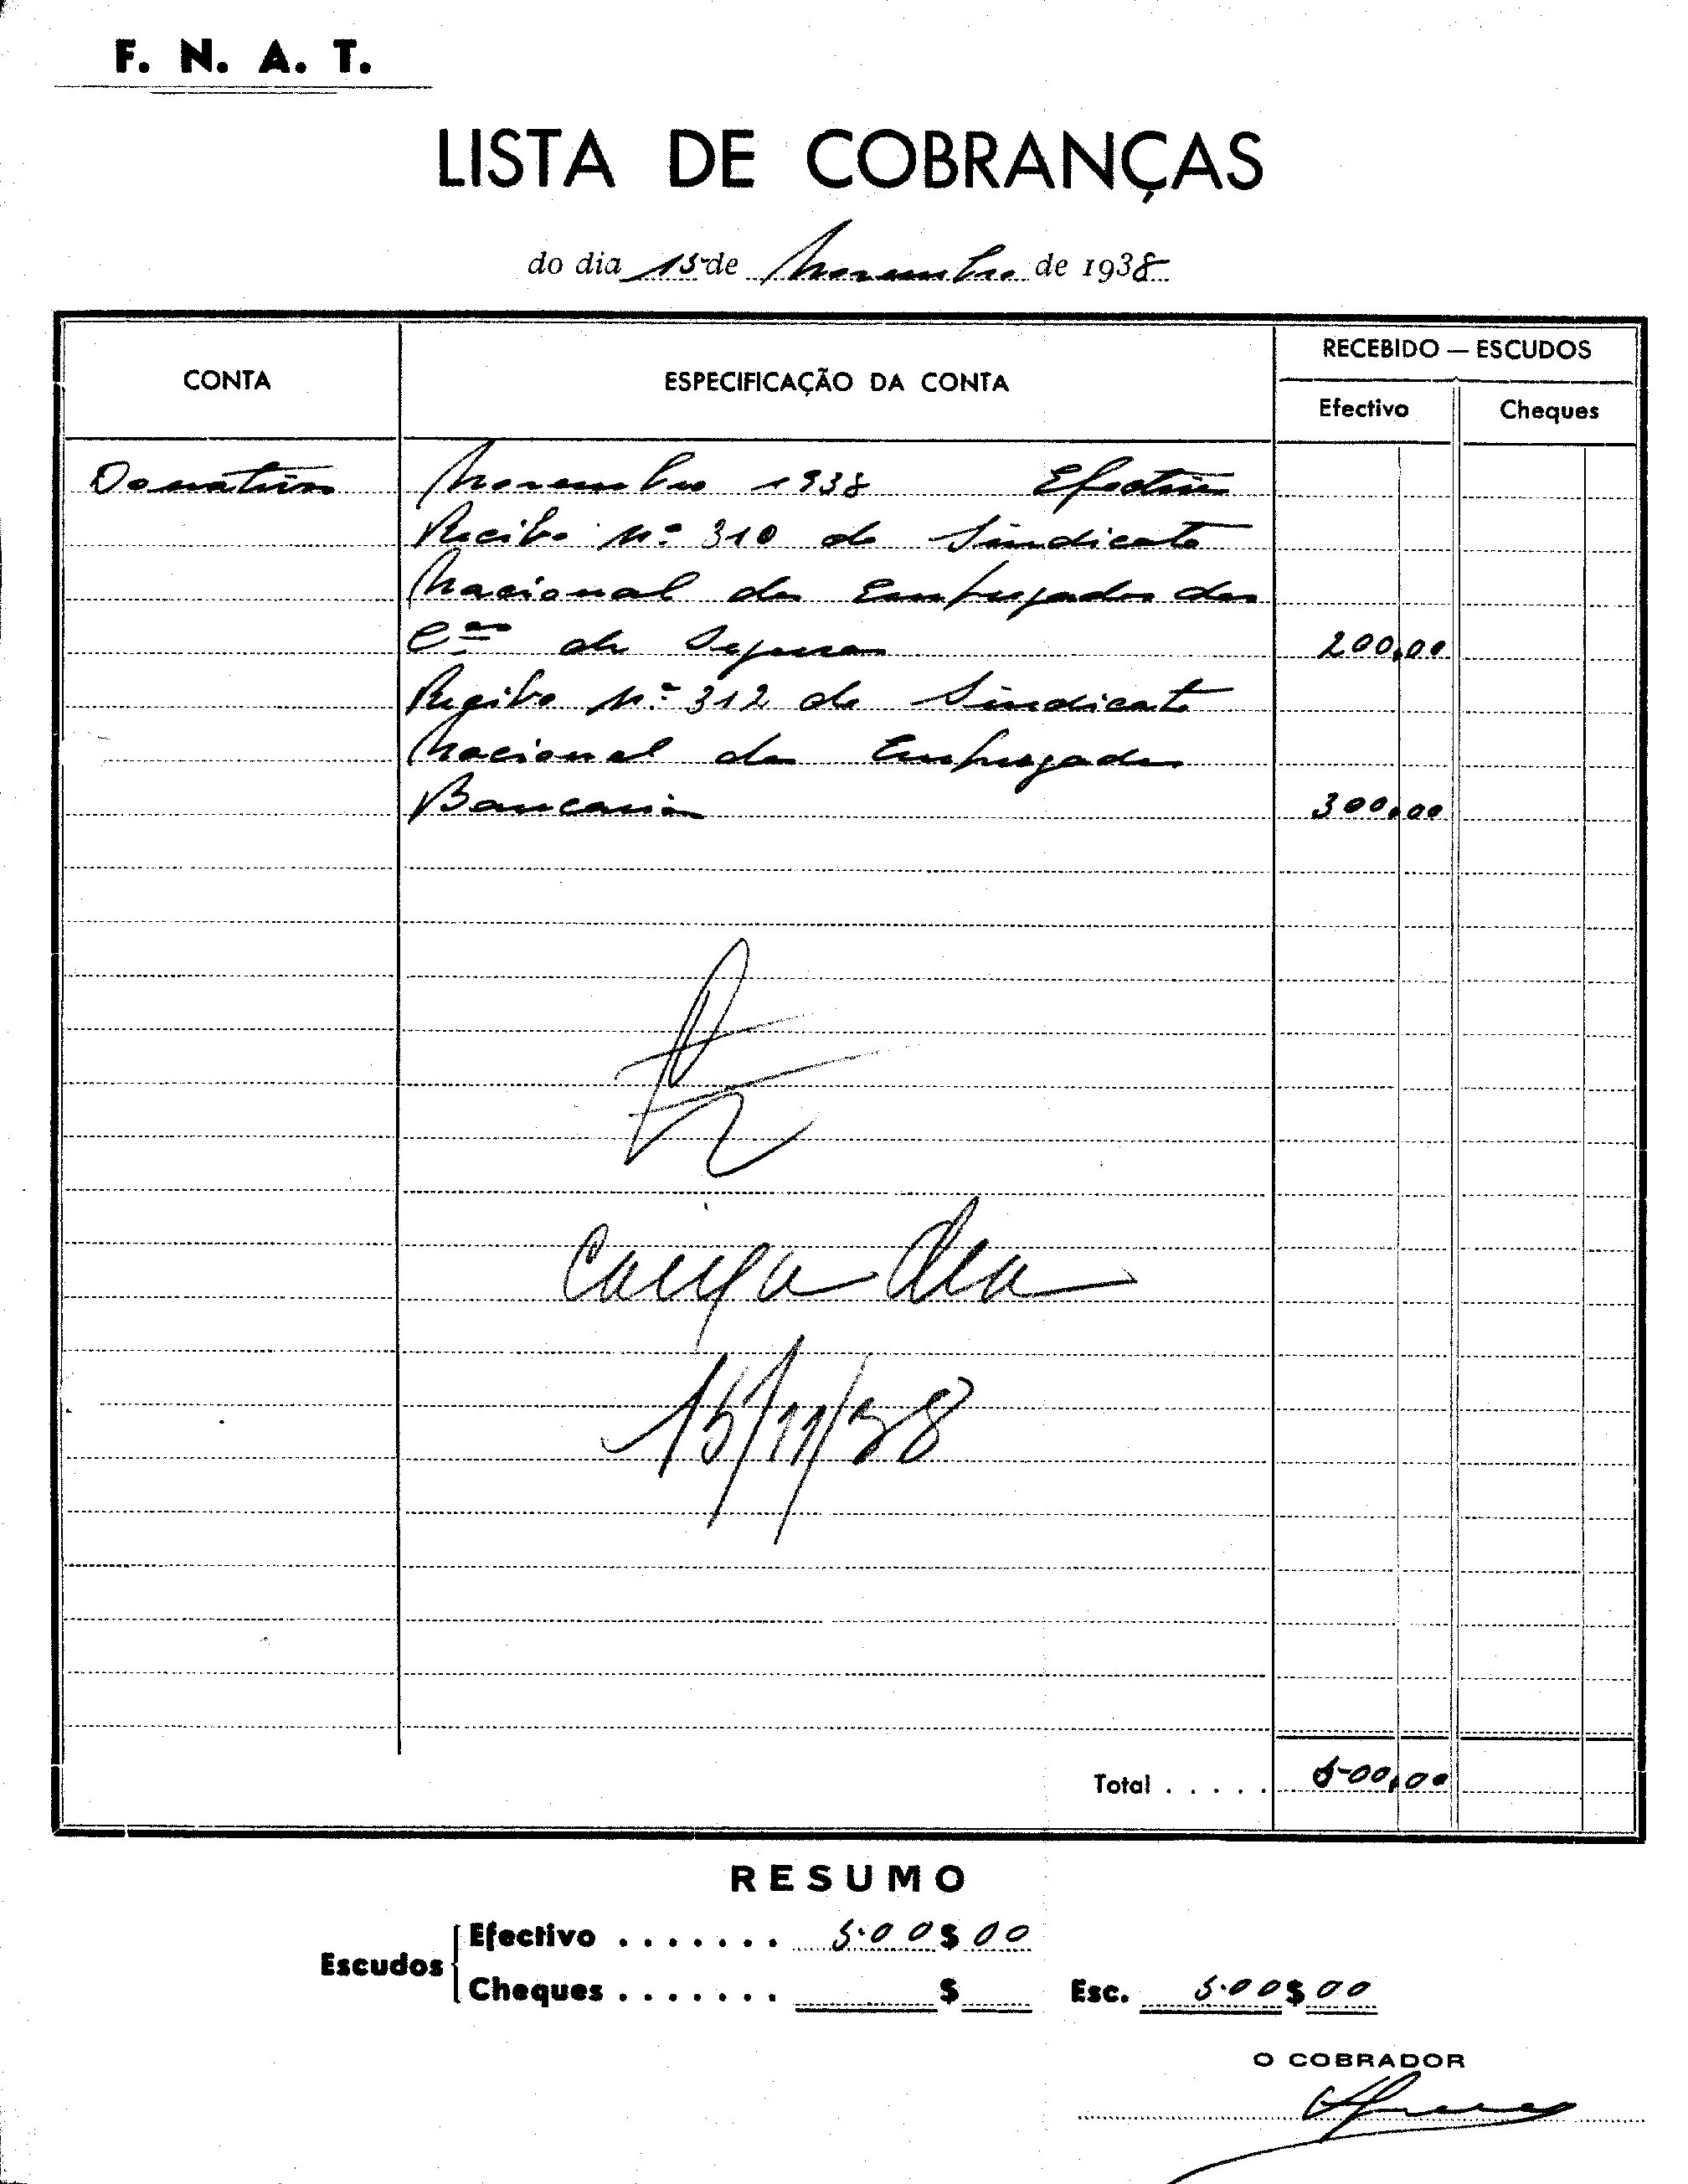 F. N. A. T.
LISTA DE COBRANÇAS
do dia 15 de Novembro de 1938
CONTA
ESPECIFICAÇÃO DA CONTA
RECEBIDO — ESCUDOS
Efectivo
Cheques
Donativos Novembro 1938 Efectivo
Recibo Nº 310 do Sindicato
Nacional dos Empregados das
Cas de Seguros 200,00
Recibo Nº 312 do Sindicato
Nacional dos Empregados
Bancarios 300,00
Caixa
15/11/38
Total . . . . . 500,00
RESUMO
Escudos
Efectivo . . . . . . . 500$00
Cheques . . . . . . . $
Esc. 500$00
O COBRADOR